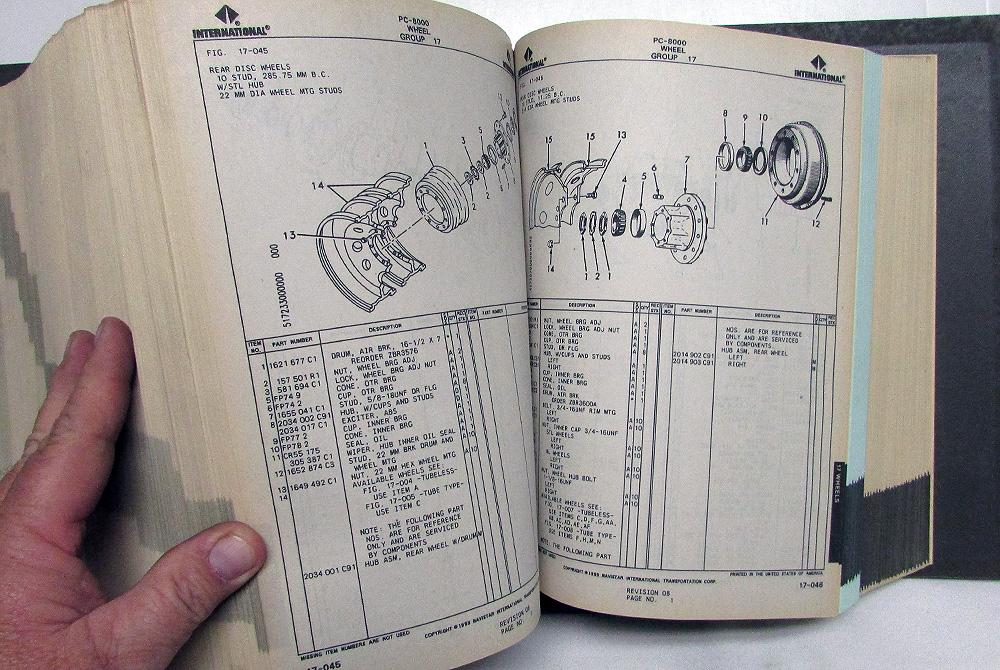 INTERNATIONAL®
PC-8000
WHEEL
GROUP 17
FIG. 17-045
REAR DISC WHEELS
10 STUD, 285.75 MM B.C.
W/STL HUB
22 MM DIA WHEEL MTG STUDS
14
13
1
3
5
2
2
517233000000 000
ITEM NO. PART NUMBER DESCRIPTION
1 1621 677 C1 DRUM, AIR BRK, 16-1/2 X 7
REORDER ZBR3576
2 157 501 R1 NUT, WHEEL BRG ADJ
3 581 694 C1 LOCK, WHEEL BRG ADJ NUT
5 FP74 9 CONE, OTR BRG
6 FP74 2 CUP, OTR BRG
7 1655 041 C1 STUD, 5/8-18UNF DR FLG
8 2034 002 C91 HUB, W/CUPS AND STUDS
2034 017 C1 EXCITER, ABS
9 FP77 2 CUP, INNER BRG
10 FP78 2 CONE, INNER BRG
11 CR55 175 SEAL, OIL
305 387 C1 WIPER, HUB INNER OIL SEAL
12 1652 874 C3 STUD, 22 MM BRK DRUM AND
WHEEL MTG
13 1649 492 C1 NUT, 22 MM HEX WHEEL MTG
14 AVAILABLE WHEELS SEE:
FIG. 17-004 -TUBELESS-
USE ITEM A
FIG. 17-005 -TUBE TYPE-
USE ITEM C
NOTE: THE FOLLOWING PART
NOS. ARE FOR REFERENCE
ONLY AND ARE SERVICED
BY COMPONENTS
2034 001 C91 HUB ASM, REAR WHEEL W/DRUM
MISSING ITEM NUMBERS ARE NOT USED
COPYRIGHT © 1999 NAVISTAR INTERNATIONAL
REVISION 08
PAGE NO. 1
17-045
INTERNATIONAL
PC-8000
WHEEL
GROUP 17
INTERNATIONAL®
FIG. 17-046
DISC WHEELS
11.25 B.C.
WHEEL MTG STUDS
15
15
13
4
5
6
7
8
9
10
11
12
14
1
2
1
DESCRIPTION
ITEM NO. PART NUMBER DESCRIPTION
NUT, WHEEL BRG ADJ
LOCK, WHEEL BRG ADJ NUT
CONE, OTR BRG
CUP, OTR BRG
STUD, DR FLG
HUB, W/CUPS AND STUDS
LEFT
RIGHT
CUP, INNER BRG
CONE, INNER BRG
SEAL, OIL
DRUM, AIR BRK
ORDER ZBR3600A
BOLT, 3/4-16UNF RIM MTG
LEFT
RIGHT
NUT, INNER CAP 3/4-16UNF
STL WHEELS
LEFT
RIGHT
AL WHEELS
LEFT
RIGHT
NUT, WHEEL HUB BOLT
1-1/8-16UNF
LEFT
RIGHT
AVAILABLE WHEELS SEE:
FIG. 17-007 -TUBELESS-
USE ITEMS C,D,F,G,AA,
FIG. 17-008 -TUBE TYPE-
USE ITEMS F,H,M,N
NOTE: THE FOLLOWING PART
NOS. ARE FOR REFERENCE
ONLY AND ARE SERVICED
BY COMPONENTS.
HUB ASM, REAR WHEEL
2014 902 C91 LEFT
2014 903 C91 RIGHT
17 WHEELS
COPYRIGHT © 1999 NAVISTAR INTERNATIONAL TRANSPORTATION CORP.
PRINTED IN THE UNITED STATES OF AMERICA
REVISION 08
PAGE NO. 1
17-046